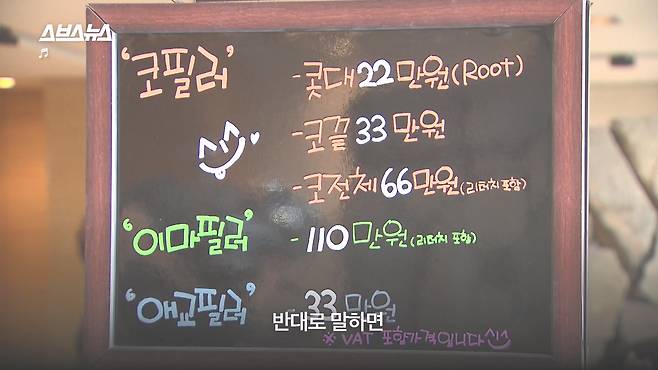 스브스뉴스
'코필러' - 콧대 22만원(Root)
- 코끝 33만원
- 코전체 66만원(리터치 포함)
'이마필러' - 110만원(리터치 포함)
'애교필러' - 33만원
반대로 말하면
※ VAT 포함가격입니다